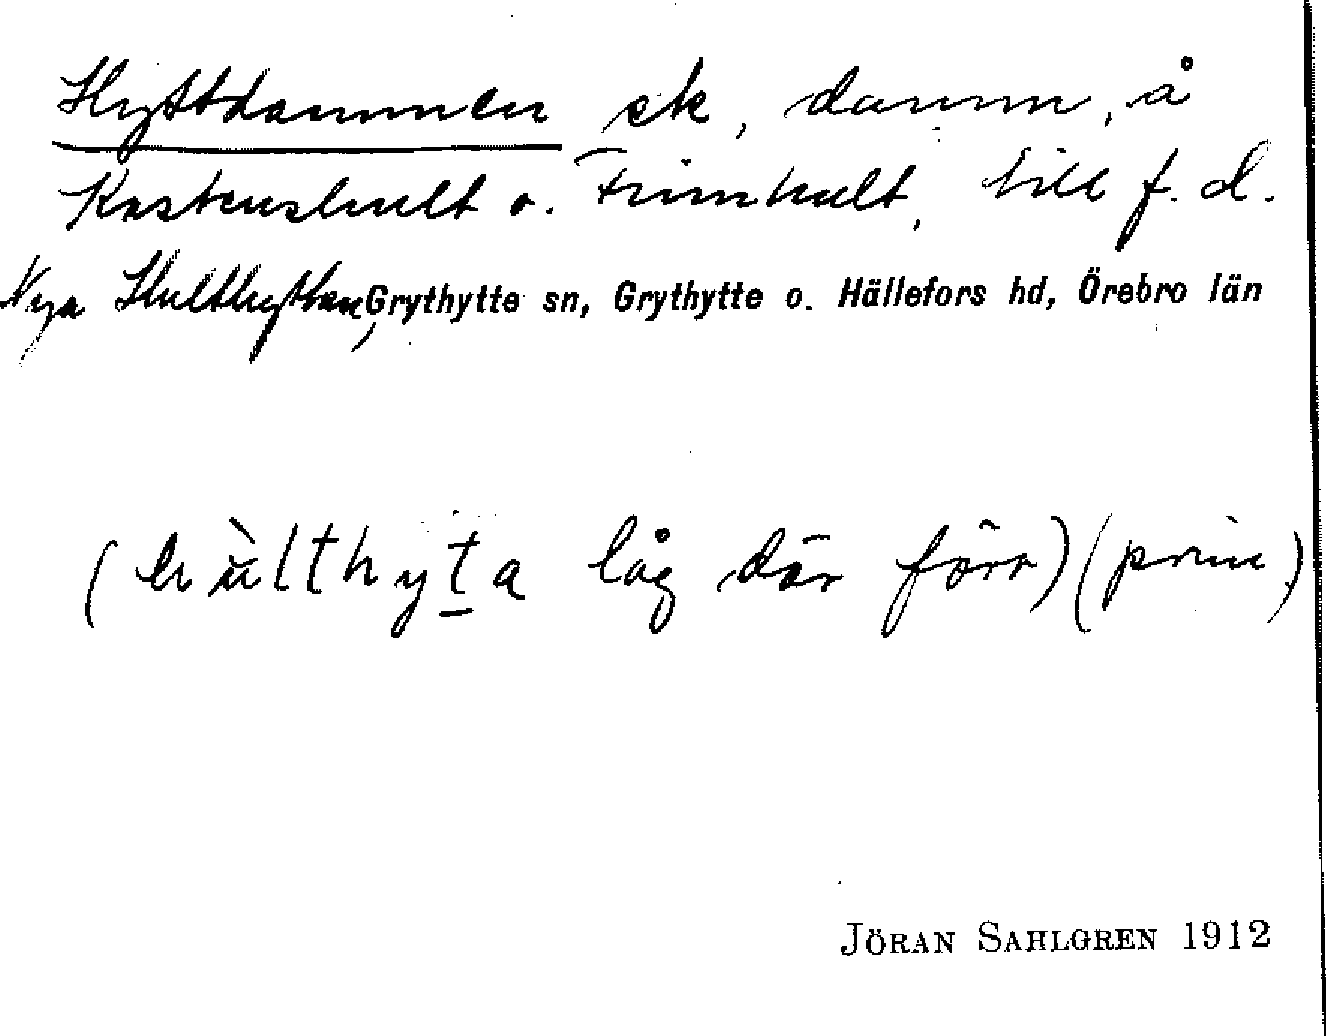 Hyttdammen sk, damm, å
Kastenshult o. Finnhult, till f. d.
Nya Hulthyttan, Grythytte sn, Grythytte o. Hällefors hd, Örebro län
(hùlthyta låg där förr) (prim)
JÖRAN SAHLGREN 1912